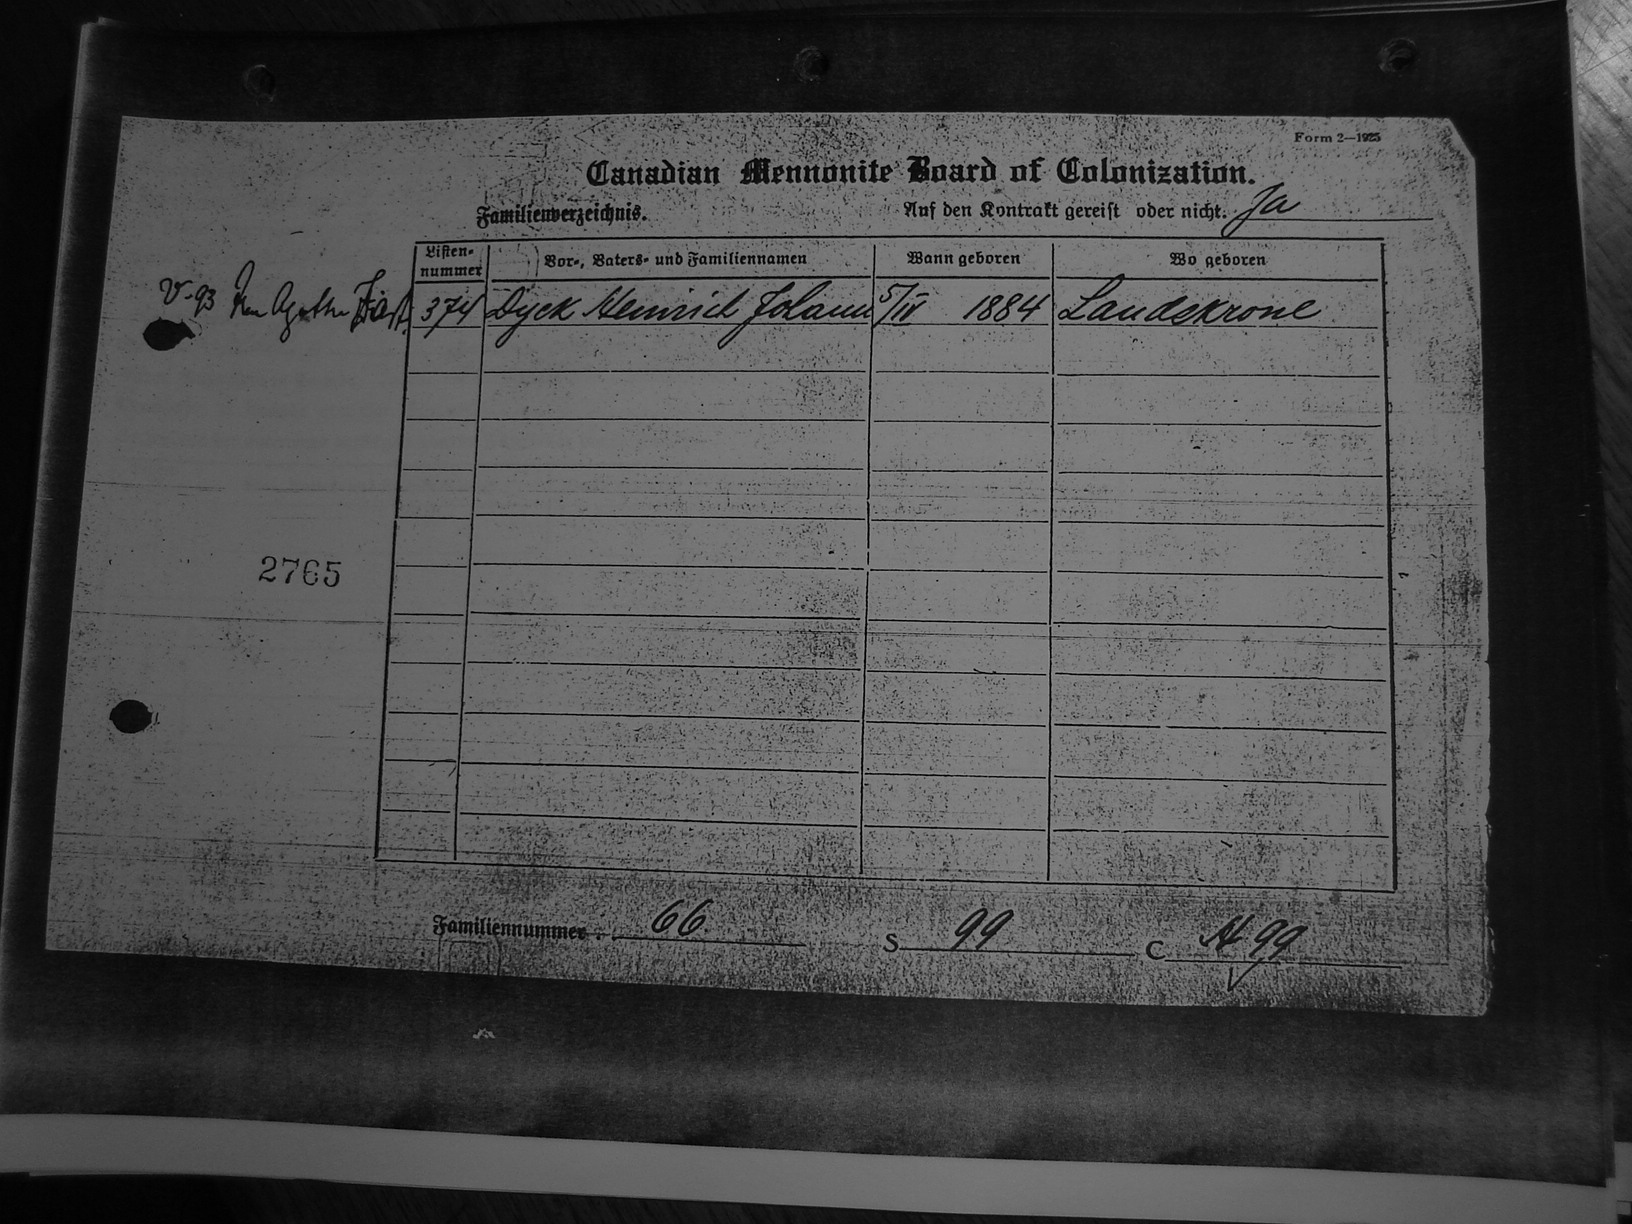 Form 2—1925
Canadian Mennonite Board of Colonization.
Familienverzeichnis. Auf den Kontrakt gereist oder nicht. Ja
Listen-nummer Vor-, Vaters- und Familiennamen Wann geboren Wo geboren
V-93 Agatha 374 Dyck Heinrich Johann 5/IV 1884 Landskrone
2765
Familiennummer 66 S 99 C A 99